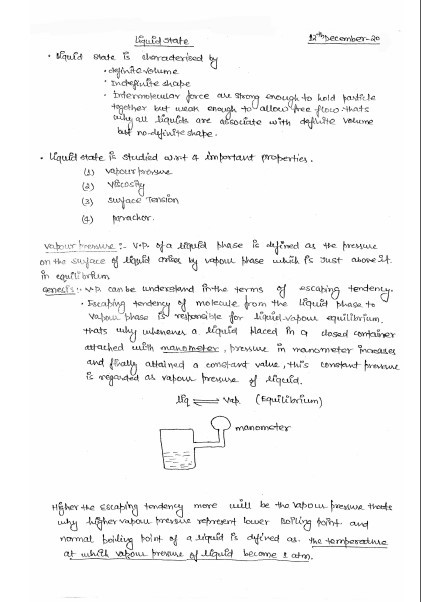 Liquid state
12th December-20
• Liquid state is characterised by
• definite volume
• Indefinite shape
• Intermolecular force are strong enough to hold particle
together but weak enough to allow free flow. thats
why all liquids are associate with definite volume
but no-definite shape.
• Liquid state is studied w.r.t 4 important properties.
(1) vapour pressure
(2) Viscosity
(3) surface Tension
(4) parachor.
Vapour pressure :- V.P. of a liquid phase is defined as the pressure
on the surface of liquid arises by vapour phase which is Just above it
in equilibrium
Genesis :- V.P. can be understand in the terms of escaping tendency.
• Escaping tendency of molecule from the liquid phase to
vapour phase is responsible for liquid-vapour equilibrium.
thats why whenever a liquid placed in a closed container
attached with manometer, pressure in manometer increases
and finally attained a constant value, this constant pressure
is regarded as vapour pressure of liquid.
liq ⇌ Vap. (Equilibrium)
manometer
Higher the escaping tendency more will be the vapour pressure thats
why higher vapour pressure represent lower Boiling point. and
normal boiling point of a liquid is defined as. the temperature
at which vapour pressure of liquid become 1 atm.